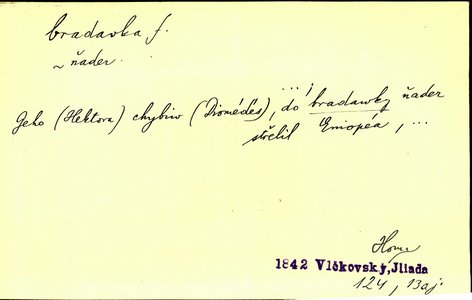 bradavka f.
~ ňader.
... ;
Geho (Hektora) chybiw (Diomédes), do bradawky ňader
střelil Eniopéa, ...
1842 Vlčkovský, Iliada
124, 13aj.